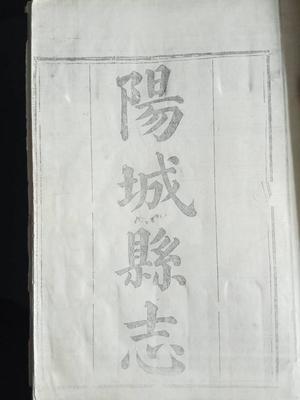 陽城縣志